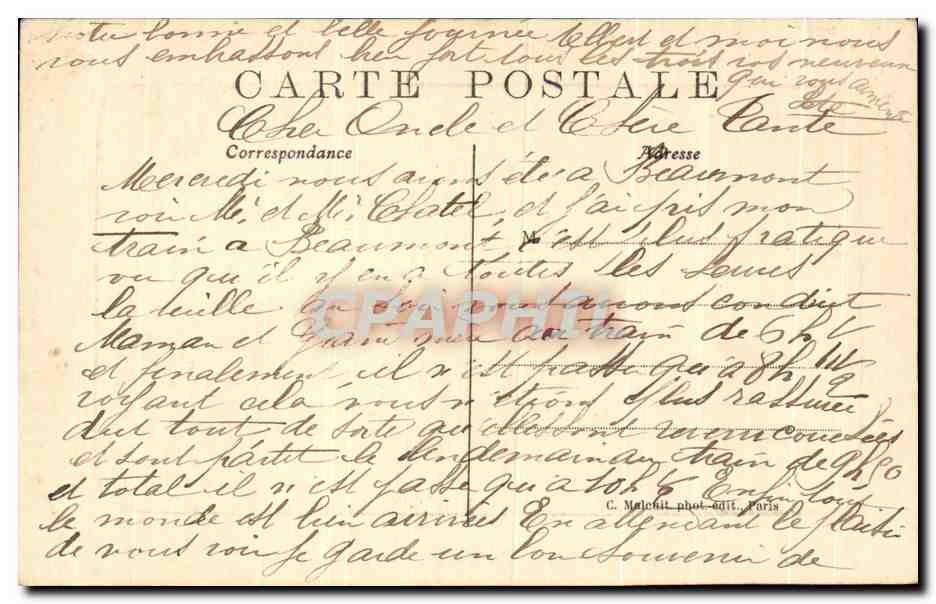 Notre bonne et belle journée Albert et moi nous
vous embrassons bien fort tous les trois vos neveux
qui vous aiment
CARTE POSTALE
Cher Oncle et Chère Tante
Correspondance
Adresse
Mercredi nous avons été a Beaumont
voir Mr. et Me. Chatel, et j'ai pris mon
train a Beaumont c'est plus pratique
M
vu qu'il y en a toutes les heures
la veille au soir nous avons conduit
CPAPHIL
Maman et grand mère au train de 6h
et finalement il n'est passé qu'a 8h
voyant cela nous n'étions plus rassurée
dut tout de sorte qu'elles sont revenu couchées
et sont partet le lendemain au train de 9h50
et total il n'est passé qu'a 10h Enfin tous
C. Malcuit phot.-édit., Paris
le monde est bien arrivées En attendant le plaisir
de vous voir Je garde un bon souvenir de